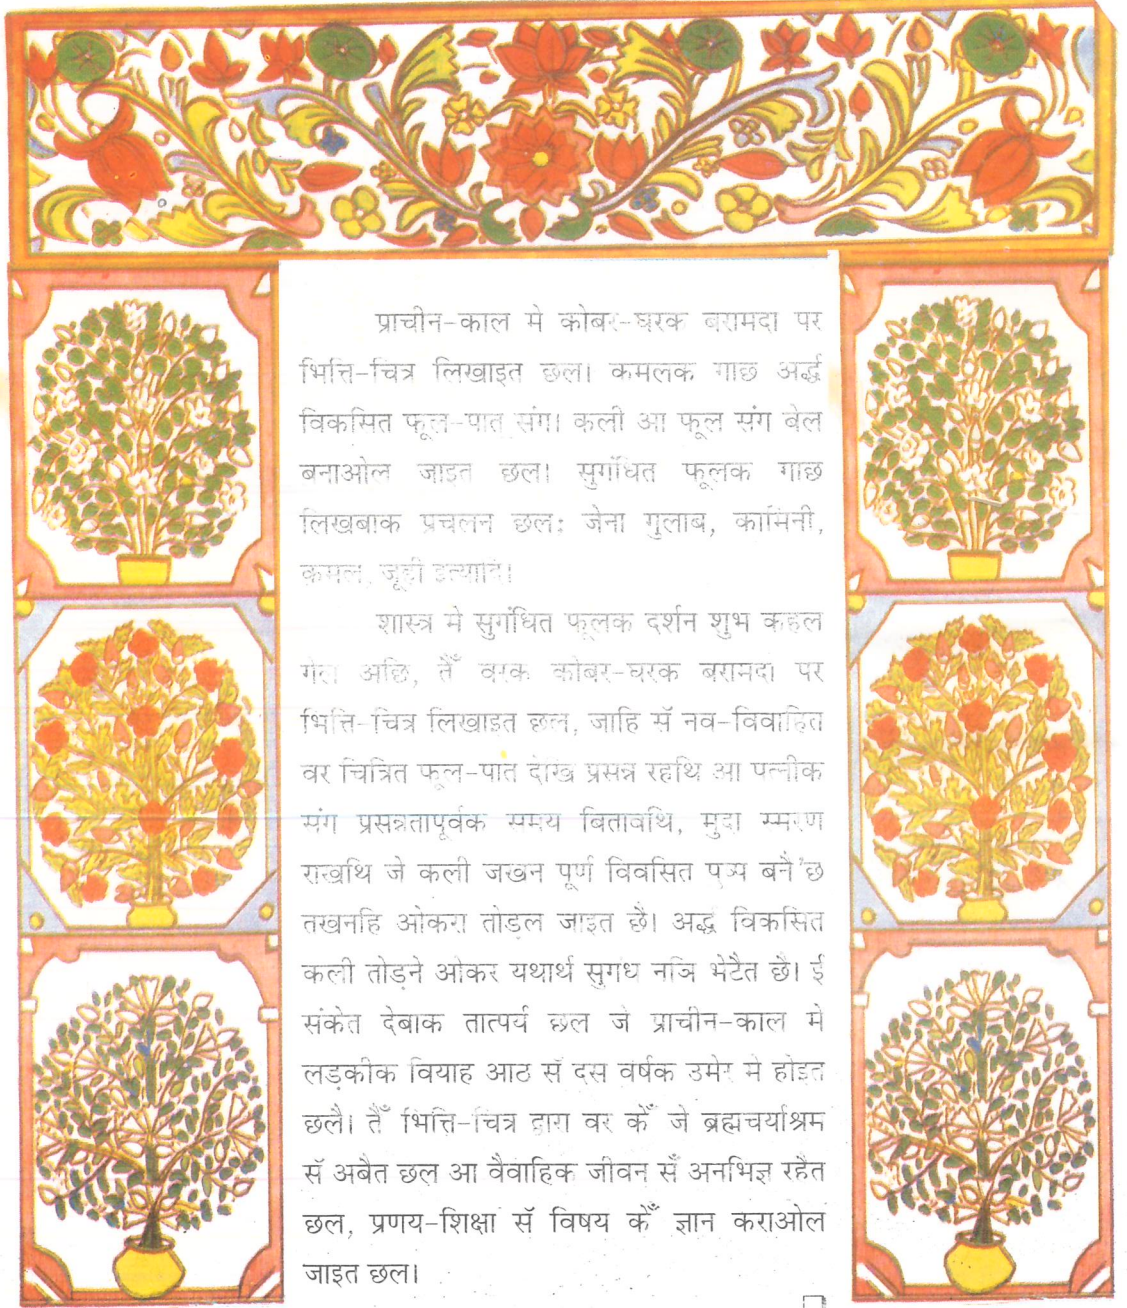 प्राचीन-काल मे कोबर-घरक बरामदा पर
भित्ति-चित्र लिखाइत छल। कमलक गाछ अर्द्ध
विकसित फूल-पात संग। कली आ फूल संग बेल
बनाओल जाइत छल। सुगंधित फूलक गाछ
लिखबाक प्रचलन छल: जेना गुलाब, कामिनी,
कमल, जूही इत्यादि।
शास्त्र मे सुगंधित फूलक दर्शन शुभ कहल
गेल अछि, तैँ वरक कोबर-घरक बरामदा पर
भित्ति-चित्र लिखाइत छल, जाहि सॅ नव-विवाहित
वर चित्रित फूल-पात देखि प्रसन्न रहथि आ पत्नीक
संग प्रसन्नतापूर्वक समय बितावथि, मुदा स्मरण
राखथि जे कली जखन पूर्ण विवसित पुष्प बनै'छ
तखनहि ओकरा तोड़ल जाइत छै। अर्द्ध विकसित
कली तोड़ने ओकर यथार्थ सुगंध नञि भेटैत छै। ई
संकेत देबाक तात्पर्य छल जे प्राचीन-काल मे
लड़कीक वियाह आठ सॅ दस वर्षक उमेर मे होइत
छलै। तैँ भित्ति-चित्र द्वारा वर केँ जे ब्रह्मचर्याश्रम
सॅ अबैत छल आ वैवाहिक जीवन सँ अनभिज्ञ रहैत
छल, प्रणय-शिक्षा सॅ विषय केँ ज्ञान कराओल
जाइत छल।